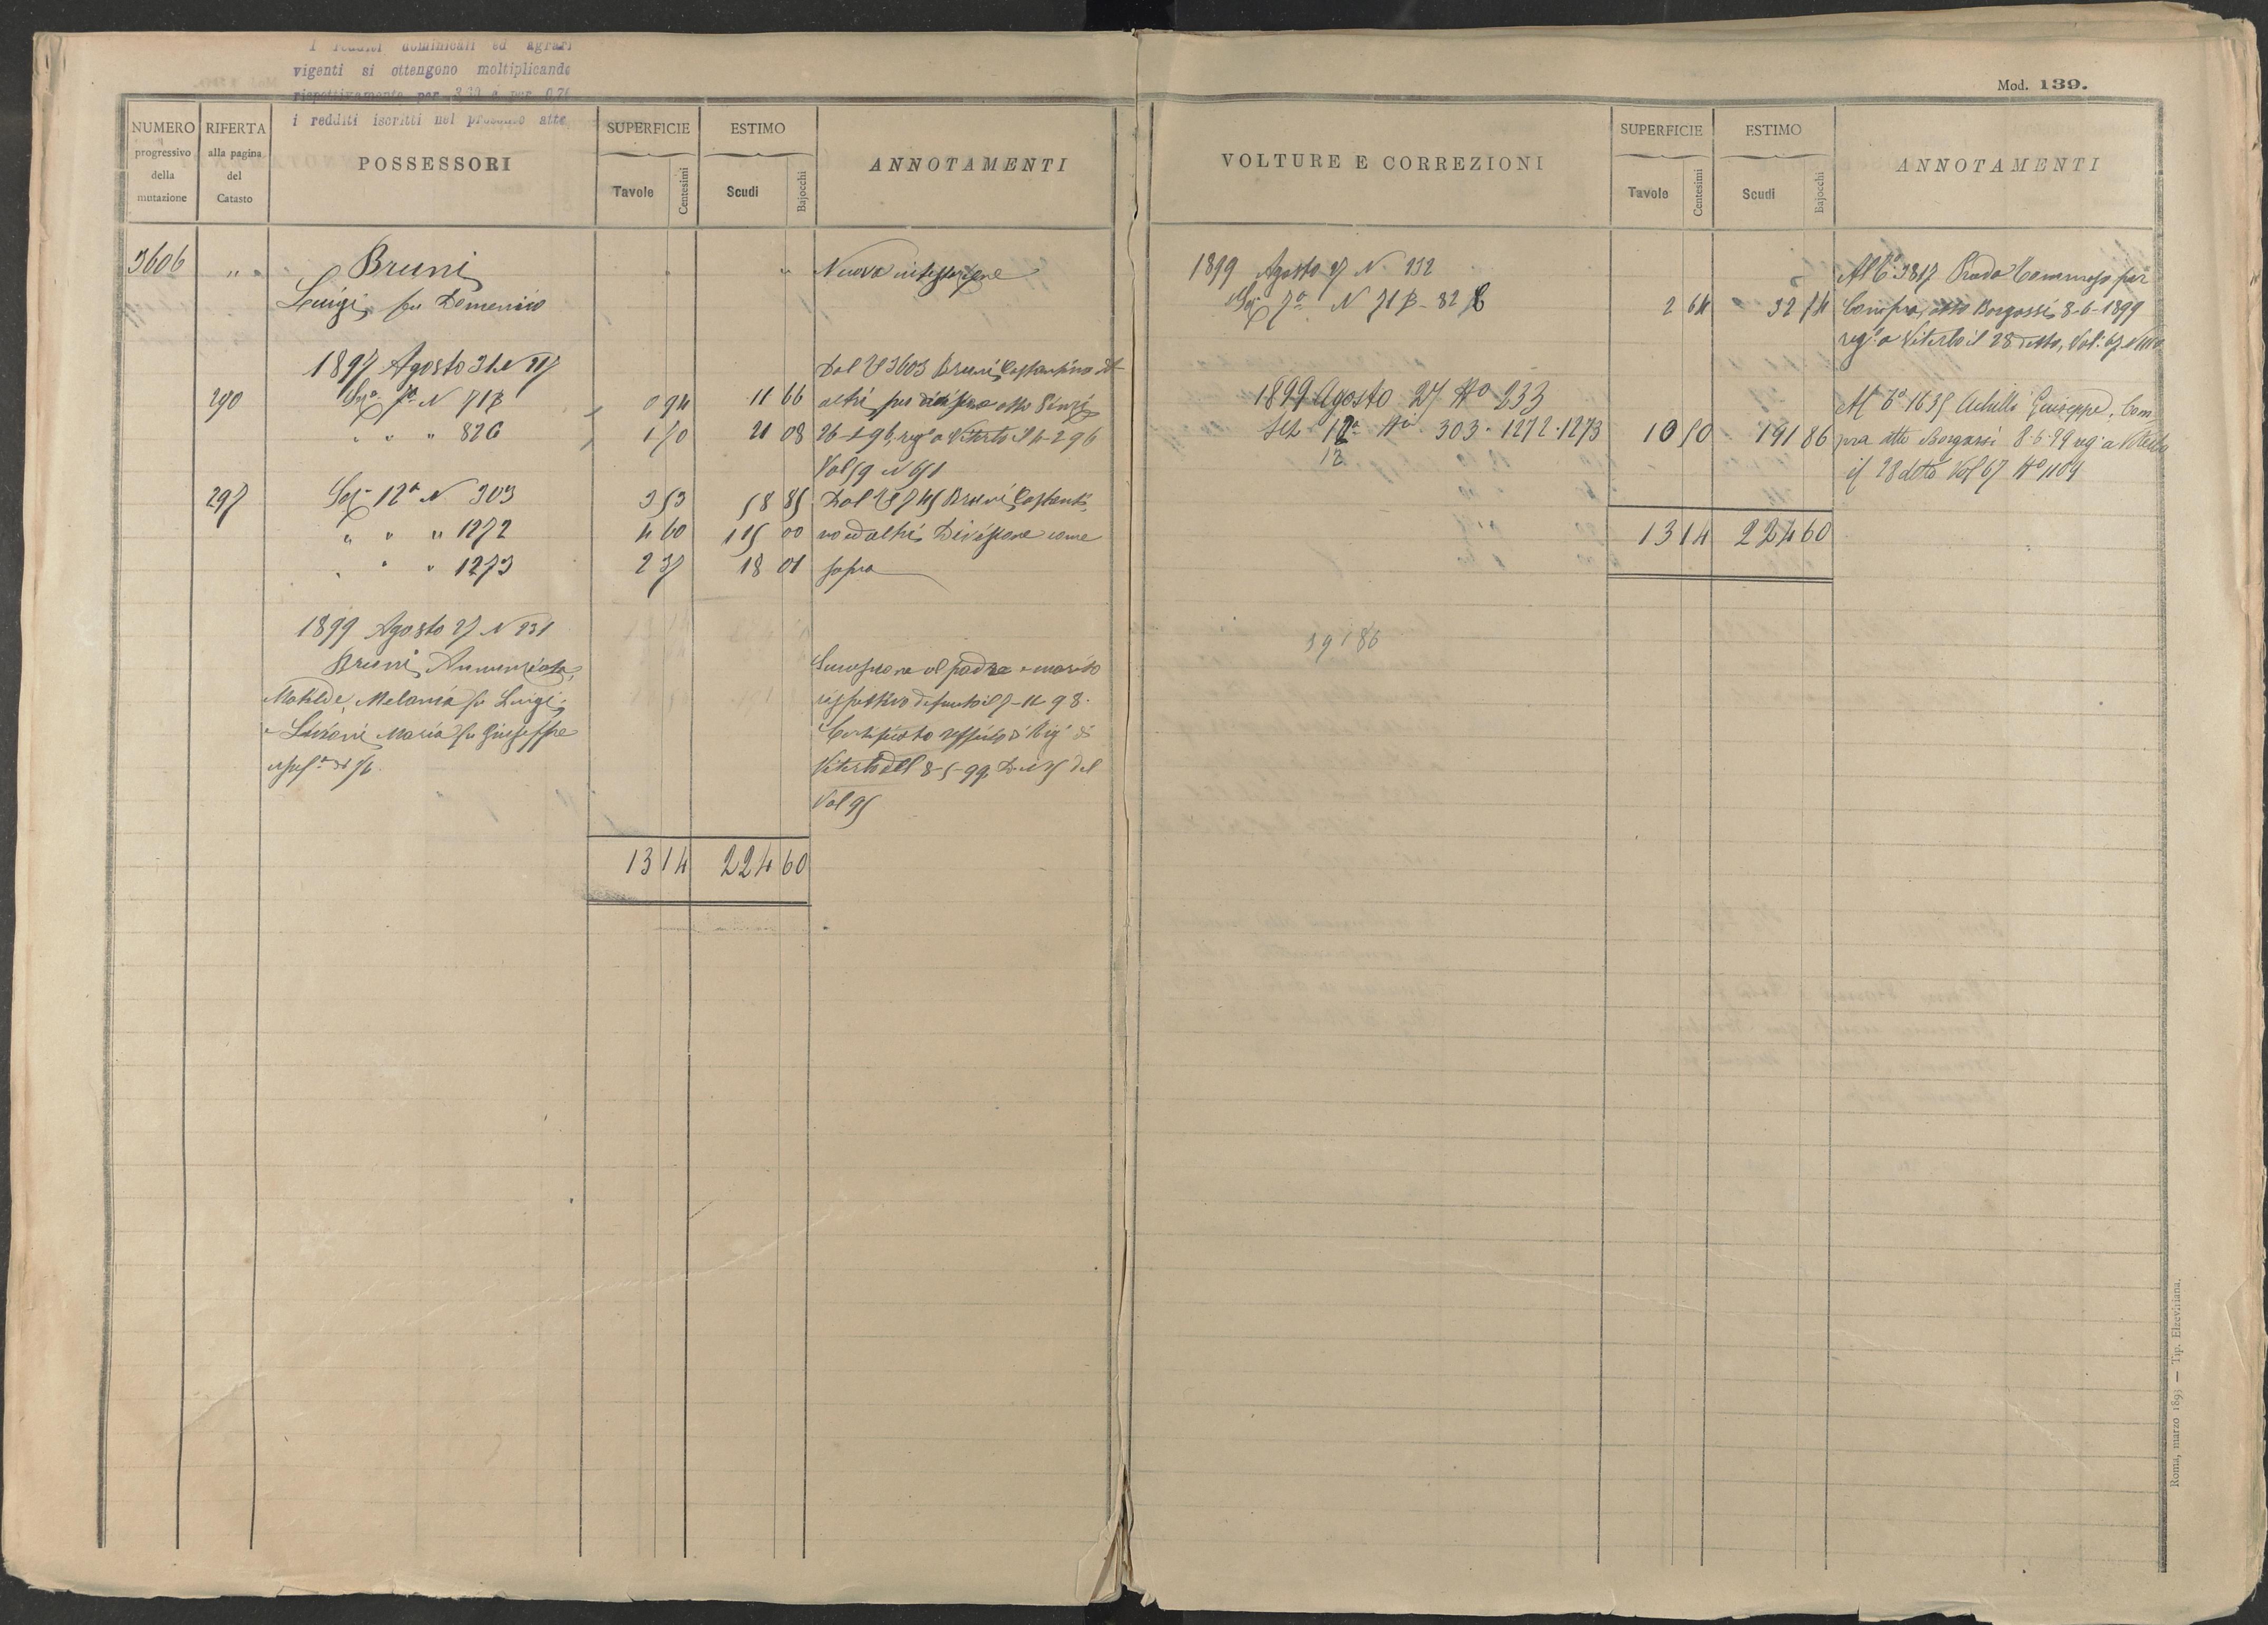 I redditi dominicali ed agrari
vigenti si ottengono moltiplicando
rispettivamente per 3,20 e per 0,70
i redditi iscritti nel presente atto
NUMERO progressivo della mutazione
RIFERTA alla pagina del Catasto
POSSESSORI
SUPERFICIE
Tavole Centesimi
ESTIMO
Scudi Bajocchi
ANNOTAMENTI
3606 " Bruni Nuova intestazione
Luigi fu Domenico
1897 Agosto 31 N
Dal 3603 Bruni Costantino ed
290 Sez. 7a N 71B 0 94 11 66 altri per divisione atto
" " " 82C 1 70 21 08 26-1-96, reg.o a Viterbo il 4-2-96
Vol 59 N 651
297 Sez. 12a N 303 3 53 58 85 Dal Bruni Costanti
" " " 1272 4 60 115 00 no ed altri Divisione come
" " " 1273 2 37 18 01 sopra
1899 Agosto 27 N 231
Bruni Annunziata, Successione al padre e marito
Matilde, Melania fu Luigi, rispettivo defunto il 7-11-98.
e Maria fu Giuseppe Certificato Uff. di Reg. di
Viterbo del 8-5-99, del
Vol 95
13 14 224 60
Mod. 139.
VOLTURE E CORREZIONI
SUPERFICIE
Tavole Centesimi
ESTIMO
Scudi Bajocchi
ANNOTAMENTI
1899 Agosto 27 N. 232 Al C.o 3817 Prada Tommaso per
Sez. 7a N 71B - 82C 2 64 32 74 Compra, atto Borgassi 8-6-1899
reg.o a Viterbo il 28 detto, Vol. 67
1899 Agosto 27 No 233 Al C.o 1635 Achilli Giuseppe, Com
Sez. 12a Ni 303. 1272. 1273 10 50 191 86 pra atto Borgassi 8.6.99 reg. a Viterbo
12 il 28 detto Vol 67 No 1104
13 14 224 60
191 86
Roma, marzo 1893 — Tip. Elzeviriana.